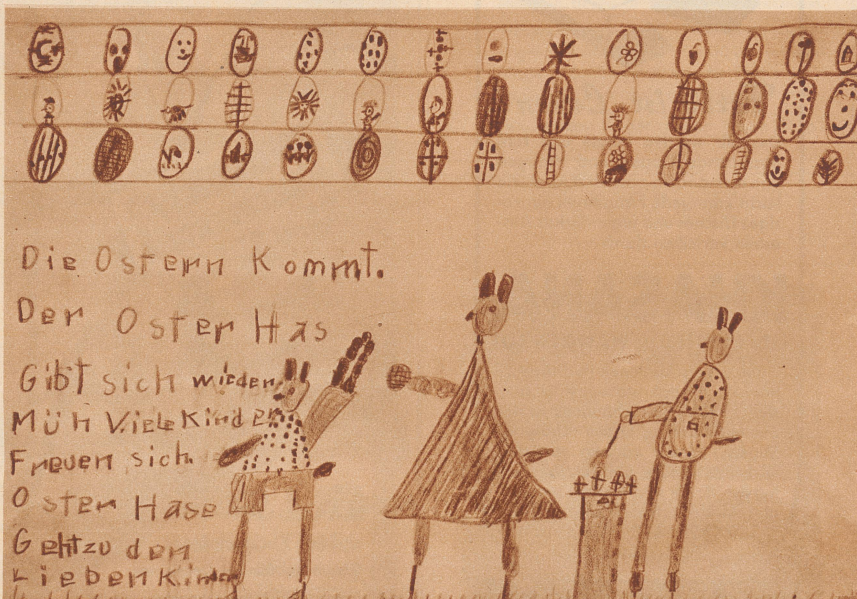 Die Ostern Kommt.
Der Oster Has
Gibt sich wieder
Müh Viele Kinder
Freuen sich.
Oster Hase
Geht zu den
Lieben Kinder